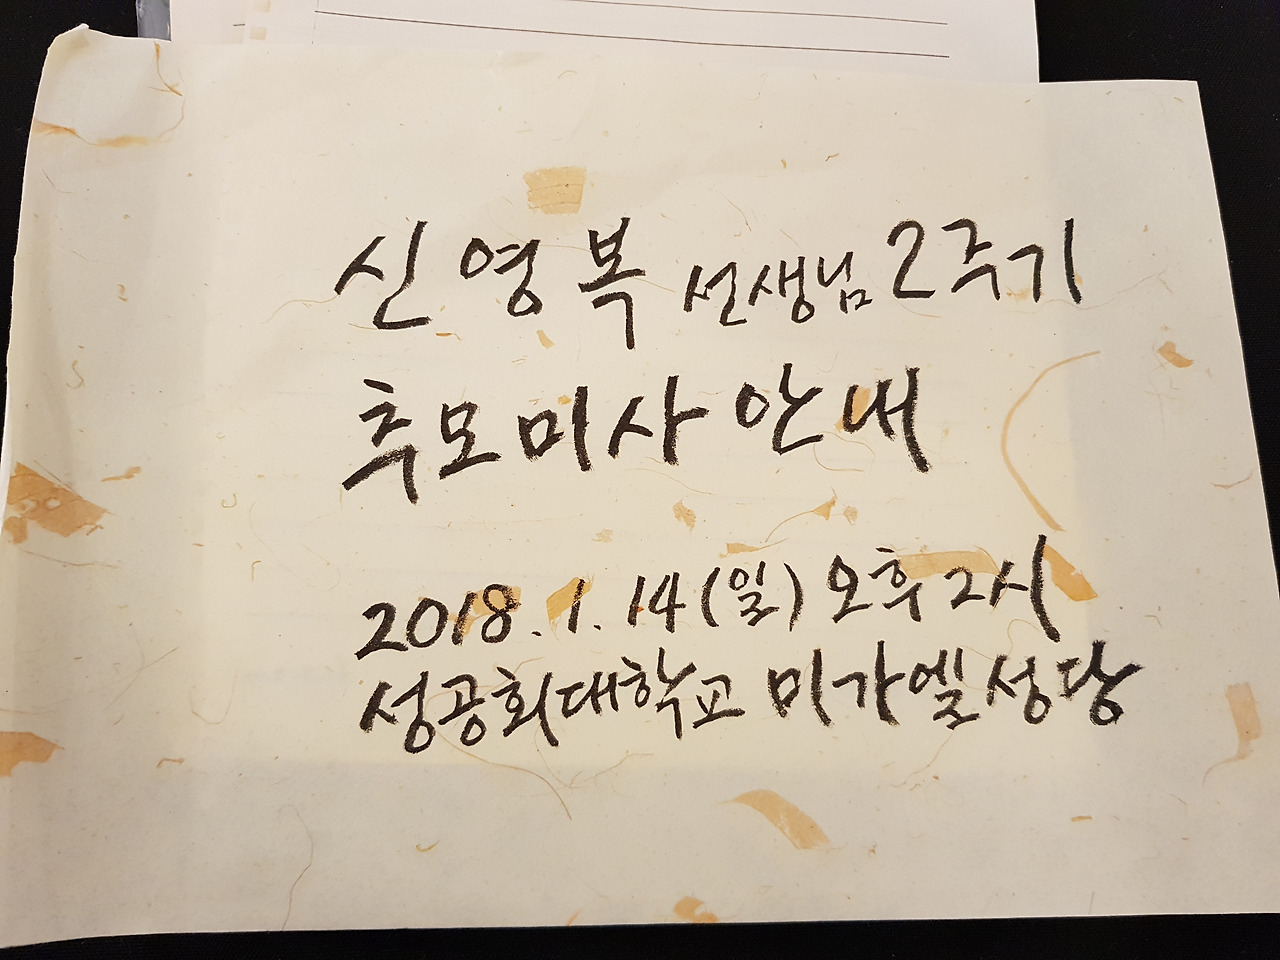 신영복 선생님 2주기
추모미사 안내
2018. 1. 14 (일) 오후 2시
성공회대학교 미가엘성당